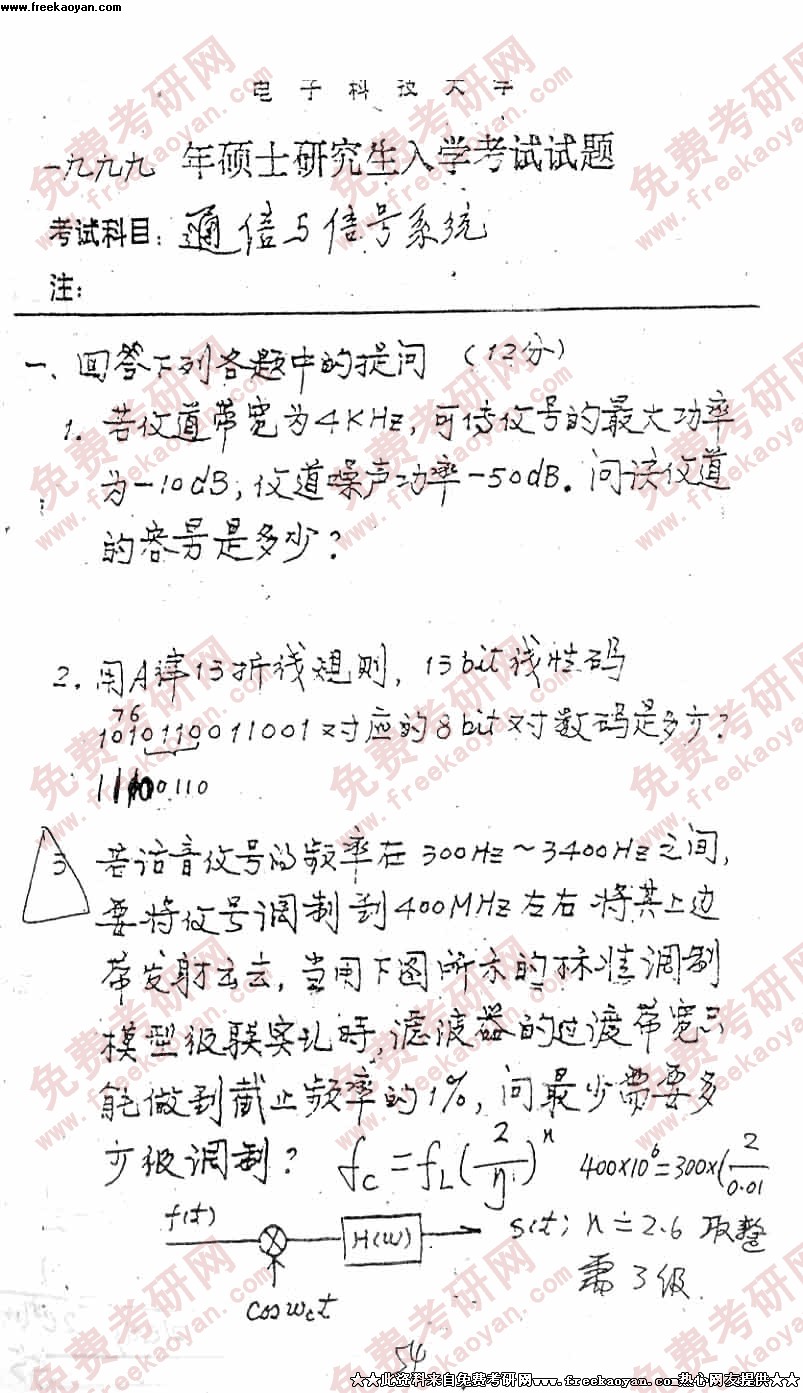 www.freekaoyan.com
电子科技大学
一九九九年硕士研究生入学考试试题
考试科目：通信与信号系统
注：
一、回答下列各题中的提问（12分）
1. 若仪道带宽为4KHz，可传仪号的最大功率
为-10dB，仪道噪声功率-50dB。问该仪道
的容量是多少？
2. 用A律13折线规则，13bit线性码
76
1010110011001对应的8bit对数码是多少？
110110
3 若话音仪号的频率在300Hz~3400Hz之间，
要将仪号调制到400MHz左右将其上边
带发射出去，当用下图所示的标准调制
模型级联实现时，滤波器的过渡带宽只
能做到截止频率的1%，问最少需要多
少级调制？ fc=fL(2/η)^n 400×10^6=300×(2/0.01
f(t) H(ω) s(t); n≐2.6 取整
需3级
cosωct
54
★★此资料来自免费考研网www.freekaoyan.com热心网友提供★★